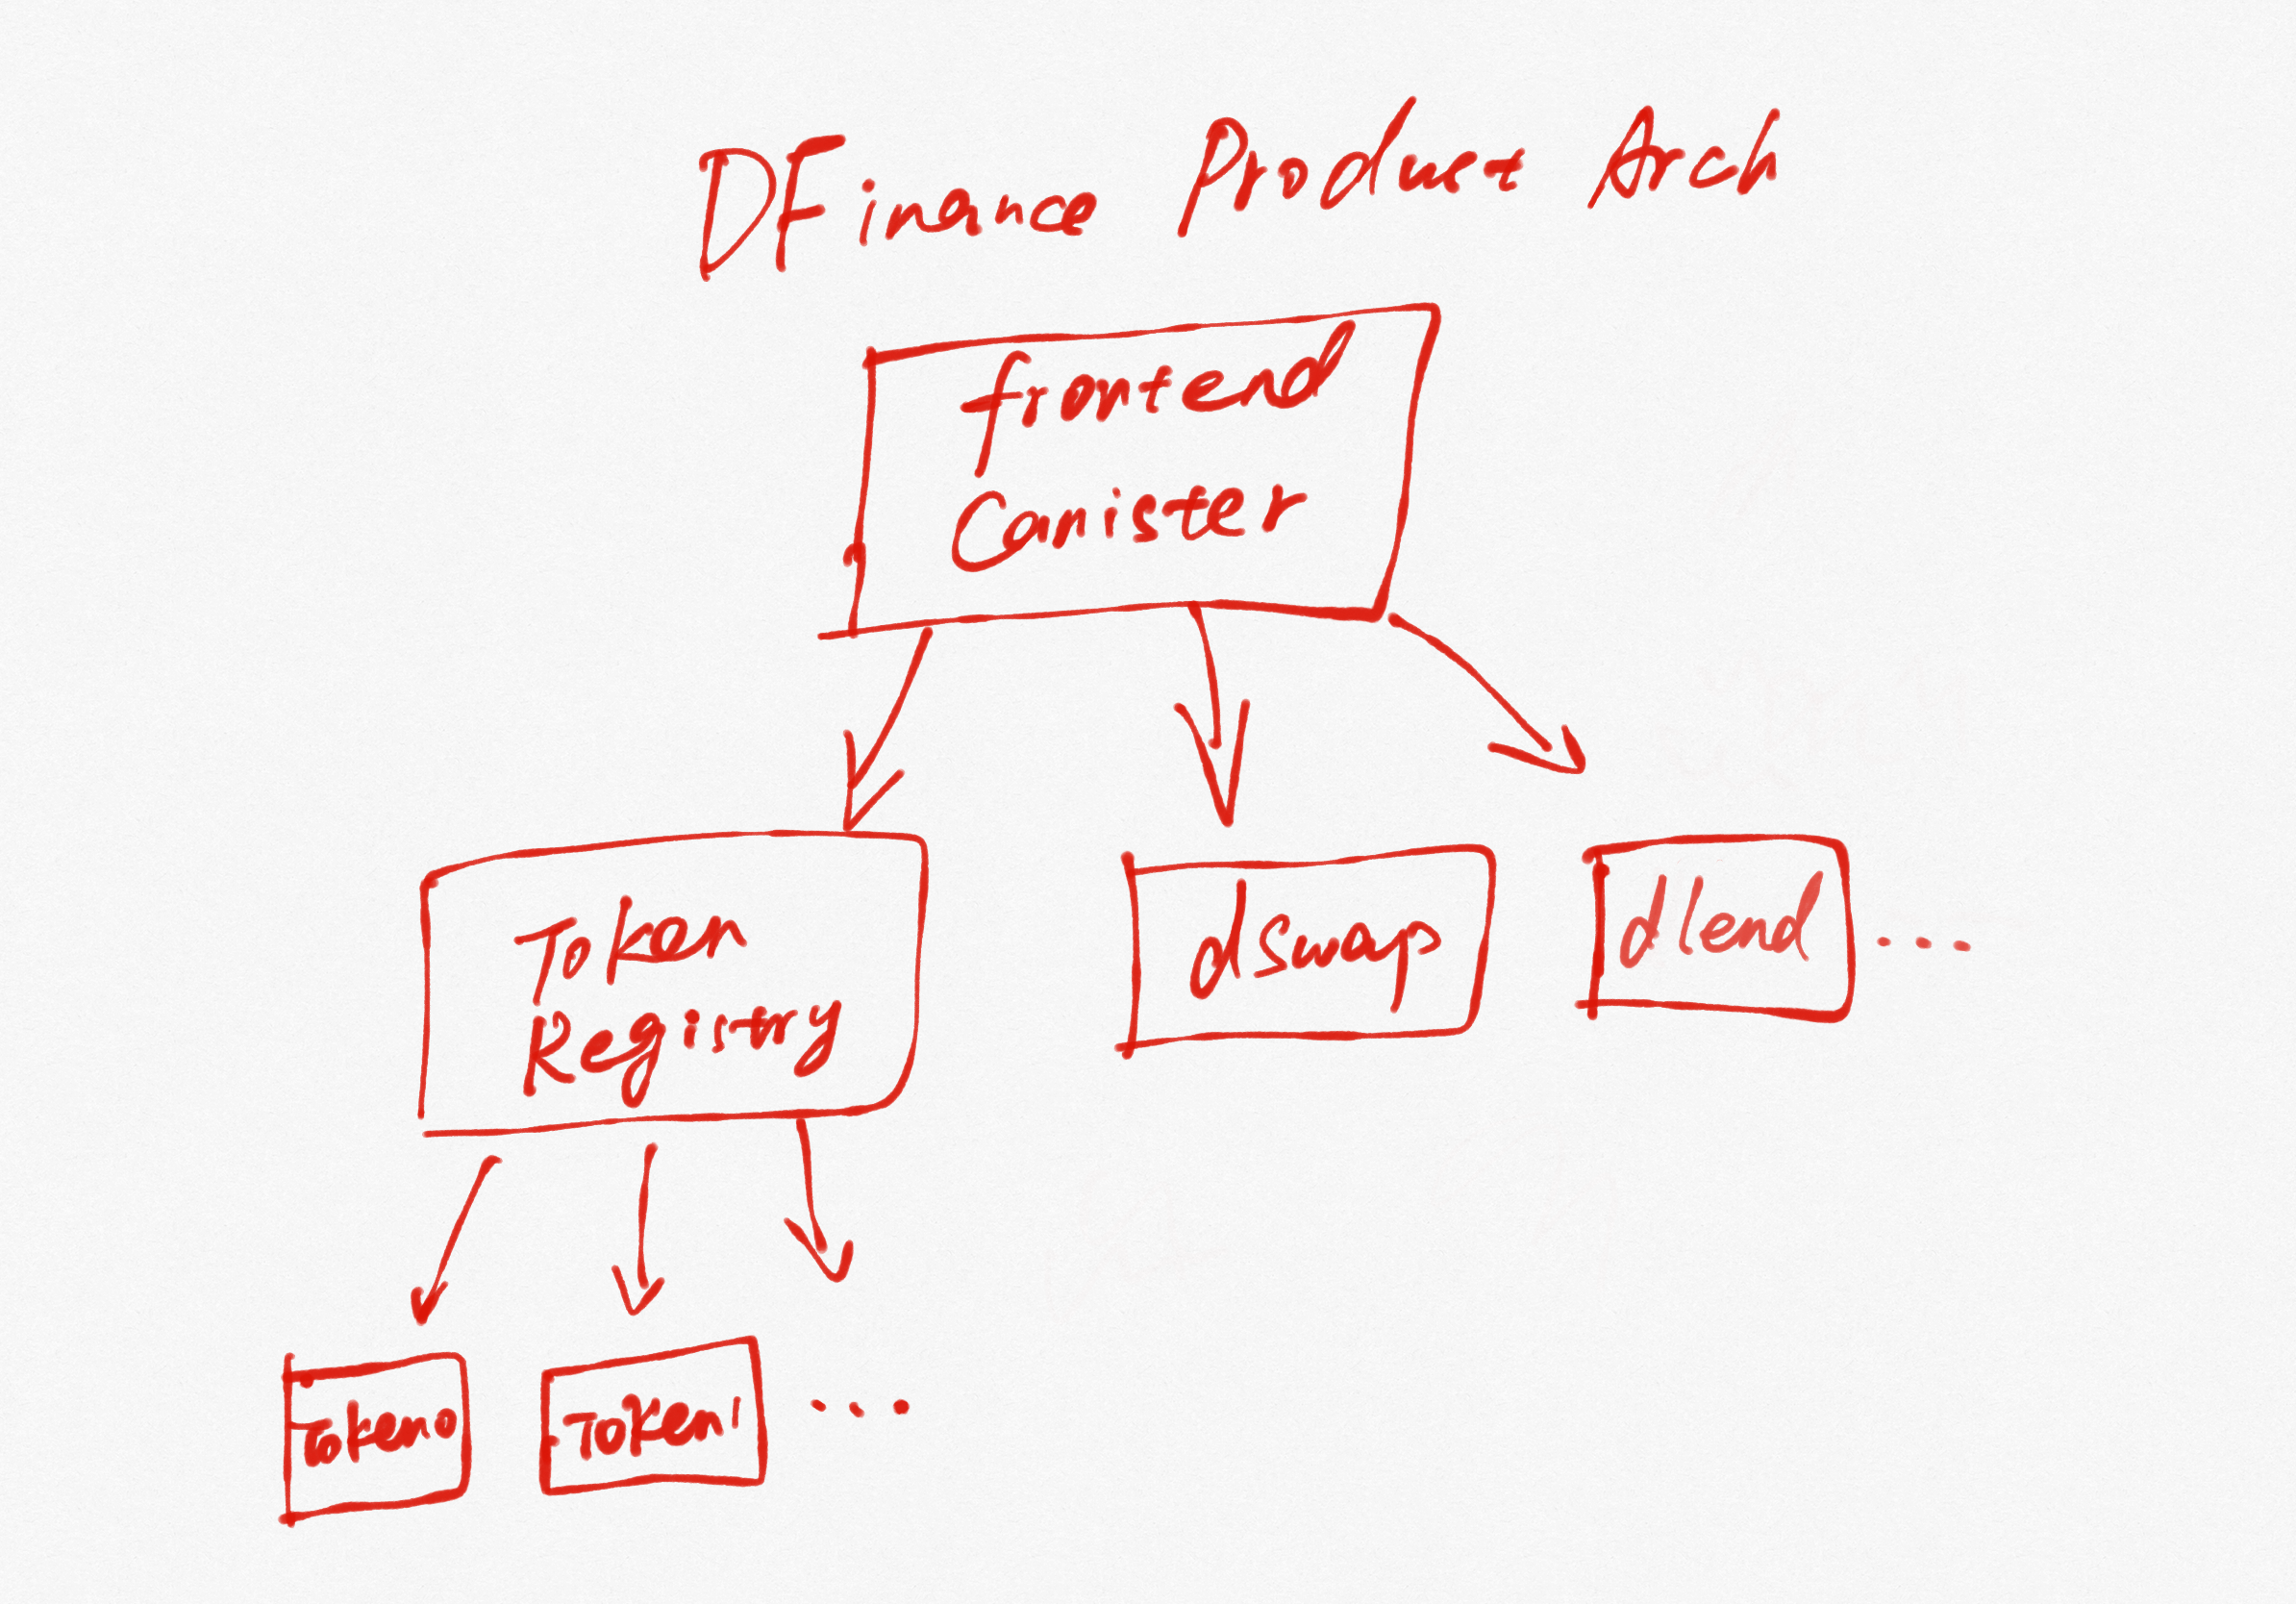 DFinance Product Arch
frontend
Canister
Token
Registry
dswap
dlend ....
Token0
Token1 ...